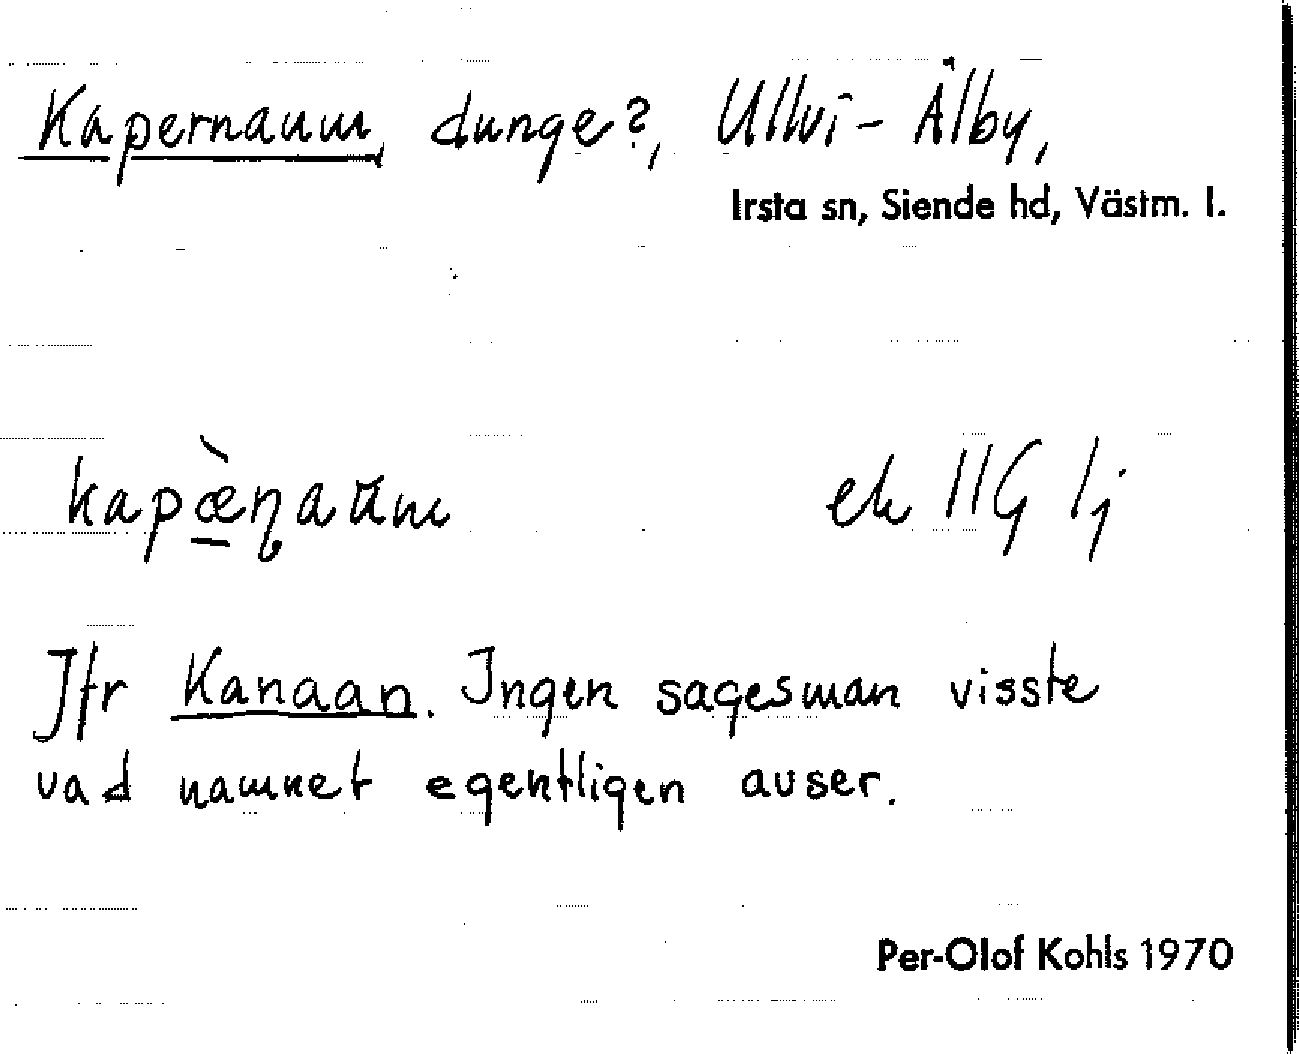 Kapernaum, dunge?, Ullvi-Älby,
Irsta sn, Siende hd, Västm. l.
kapæ̀ɳaum
ek IIG Ij
Jfr Kanaan. Ingen sagesman visste
vad namnet egentligen avser.
Per-Olof Kohls 1970